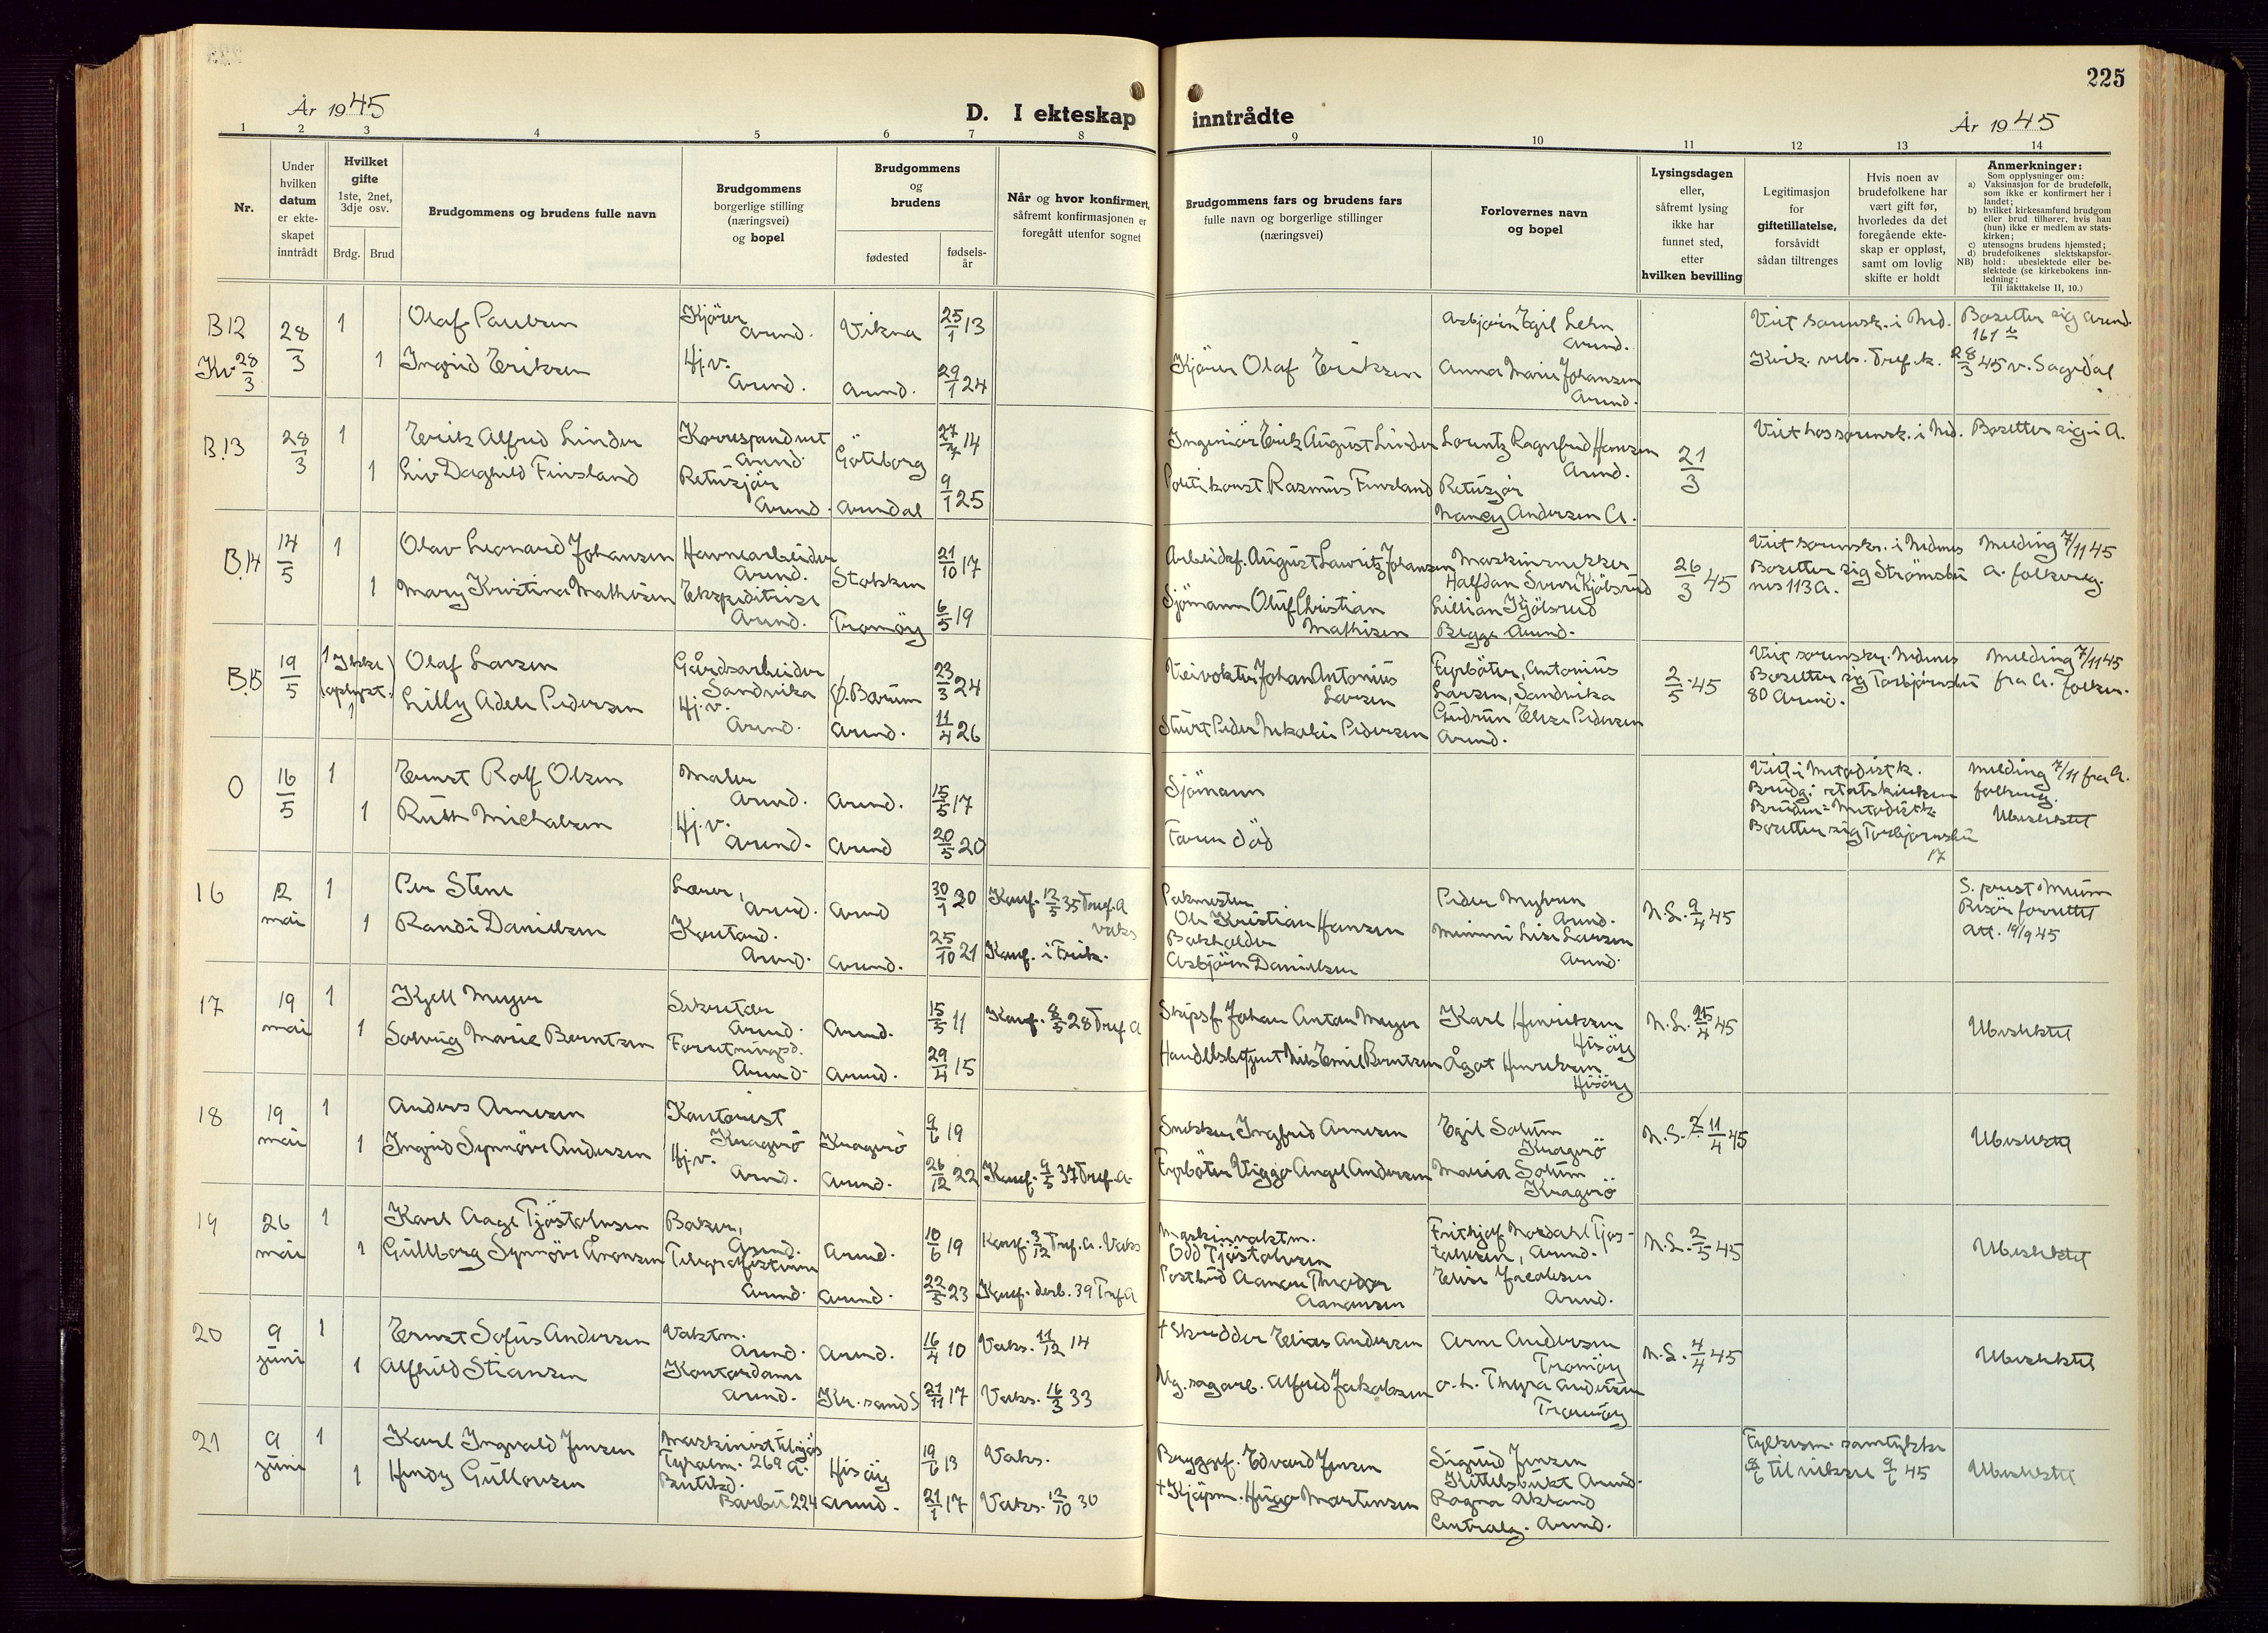 225
År 1945
D. I ekteskap inntrådte
År 1945
1 2 3 4 5 6 7 8 9 10 11 12 13 14
Nr.
Under
hvilken
datum
er ekte-
skapet
inntrådt
Hvilket
gifte
1ste, 2net,
3dje osv.
Brdg. Brud
Brudgommens og brudens fulle navn
Brudgommens
borgerlige stilling
(næringsvei)
og bopel
Brudgommens
og
brudens
fødested
fødsels-
år
Når og hvor konfirmert,
såfremt konfirmasjonen er
foregått utenfor sognet
Brudgommens fars og brudens fars
fulle navn og borgerlige stillinger
(næringsvei)
Forlovernes navn
og bopel
Lysingsdagen
eller,
såfremt lysing
ikke har
funnet sted,
etter
hvilken bevilling
Legitimasjon
for
giftetillatelse,
forsåvidt
sådan tiltrenges
Hvis noen av
brudefolkene har
vært gift før,
hvorledes da det
foregående ekte-
skap er oppløst,
samt om lovlig
skifte er holdt
Anmerkninger:
Som opplysninger om:
a) Vaksinasjon for de brudefolk,
som ikke er konfirmert her i
landet;
b) hvilket kirkesamfund brudgom
eller brud tilhører, hvis han
(hun) ikke er medlem av stats-
kirken;
c) utensogns brudens hjemsted;
d) brudefolkenes slektskapsfor-
NB) hold: ubeslektede eller be-
slektede (se kirkebokens inn-
ledning:
Til iakttakelse II, 10.)
B12 28/3 1 Olaf Paulsen Kjörer Arend. Vikna 25/1 13 Asbjörn Egil Lehn Arend. Viet sorensk. i Ned. Bosetter sig Arend. 161
Kv 28/3 1 Ingrid Eriksen Hj.v. Arend. Arend. 29/1 24 Kjörer Olaf Eriksen Anna Marie Johansen Arend. Kirk. vels. Tref.k. 28/3 45 v. Sagedal
B.13 28/3 1 Erik Alfred Linder Korrespondent Arend. Göteborg 27/7 14 Ingeniör Erik August Linder Lorentz Ragnfred Hansen Arend. 21/3 Viet hos sorensk. i Ned. Bosetter sig i A.
1 Liv Dagheid Finsland Retusjör Arend. Arendal 9/1 25 Politikonst Rasmus Finsland Retusjör Nancy Andersen A.
B.14 14/5 1 Olav Leonard Johansen Havnearbeider Arend. Stokken 21/10 17 Arbeidsf. August Lauritz Johansen Maskinsnekker Halfdan Sverre Kjölsrud 26/3 45 Viet sorenskr. i Nedenes Melding 7/11 45
1 Mary Kristina Mathisen Ekspeditrise Arend. Tromöy 6/5 19 Sjömann Oluf Christian Mathisen Lillian Kjölsrud Begge Arend. Bosetter sig Strömsbu nes 113 A. A. folkereg.
B.15 19/5 1 (Ikke oplyst.) Olaf Larsen Gårdsarbeider Sandvika Ø. Bærum 23/3 24 Veivokter Johan Antonius Larsen Fyrböter, Antonius Larsen, Sandvika 2/5 45 Viet sorenskr. Nedenes Melding 7/11 45
1 Lilly Adele Pedersen Hj.v. Arend. Arend. 11/4 26 Stuert Peder Mikalei Pedersen Gudrun Elise Pedersen Arend. Bosetter sig Torbjörnsbu 80 Arend. fra A. folker.
O 16/5 1 Ernst Rolf Olsen Maler Arend. Arend. 15/5 17 Sjömann Viet i Metodistk. Melding 7/11 fra A. folkereg.
1 Ruth Michalsen Hj.v. Arend. Arend 20/5 20 Faren död Brudg. i statskirken Bruden = Metodistk. Bosetter sig Torbjörnsbu 17 Ubeslektet
16 12 mai 1 Per Stene Lærer, Arend. Arend 30/1 20 Konf. 12/5 35 Tref. A vaks Pakmester Ole Kristian Hansen Peder Myhren Arend. N.L. 9/4 45 S. prest Muim Risör forrettet
1 Randi Danielsen Kontord. Arend. Arend. 25/10 21 Konf. i Frik. Bokholder Asbjörn Danielsen Mimmi Lise Larsen Arend. Att. 19/9 45
17 19 mai 1 Kjell Meyer Sekretær Arend. Arend. 15/5 11 Konf. 8/5 28 Tref. A Skipsf. Johan Anton Meyer Karl Henriksen Hisöy N.L. 25/4 45 Ubeslektet
1 Solveig Marie Berntsen Forretningsd. Arend. Arend. 29/4 15 Handelsbetjent Nils Emil Berntsen Ågot Henriksen Hisöy
18 19 mai 1 Anders Arnesen Kontorist Kragerö Kragerö 9/6 19 Snekker Ingfred Arnesen Egil Solum Kragerö N.L. 11/4 45 Ubeslektet
1 Ingrid Synnöve Andersen Hj.v. Arend. Arend. 26/12 22 Konf. 9/5 37 Tref. A. Fyrböter Viggo Angel Andersen Maria Solum Kragerö
19 26 mai 1 Karl Aage Tjöstolvsen Baker, Arend. Arend. 10/6 19 Konf. 3/12 Tref. A. Vaks Maskinvaktm. Odd Tjöstolvsen Frithjof Nordahl Tjös-tolvsen, Arend. N.L. 2/5 45 Ubeslektet
1 Gullborg Synnöve Aronsen Telegrafistinne Arend. Arend. 22/5 23 Konf. ders. 39 Tref. A Postbud Aanon Theodor Aanonsen Elise Jacobsen Arend.
20 9 juni 1 Ernst Sofus Andersen Vaktm. Arend. Arend. 16/4 10 Vaks. 11/12 14 † Skredder Elias Andersen Arne Andersen Tromöy N.L. 4/4 45 Ubeslektet
1 Alfhild Stiansen Kontordame Arend. Kr.sand S 21/11 17 Vaks. 16/3 33 Ug. sagarb. Alfred Jakobsen o.h. Thyra Andersen Tromöy
21 9 juni 1 Karl Ingvald Jensen Maskinist tilsjös Tyholm. 269 A. Hisöy 19/6 13 Vaks. Bryggef. Edvard Jensen Sigurd Jensen Kittelsbukt Arend. Fylkesm. samtykke 8/6 til vielse 9/6 45 Ubeslektet
1 Hendy Gullovsen Butikd. Barbu 224 Arend. 21/1 17 Vaks. 12/10 30 † Kjöpm. Hugo Martinsen Ragna Akland Centralg. Arend.